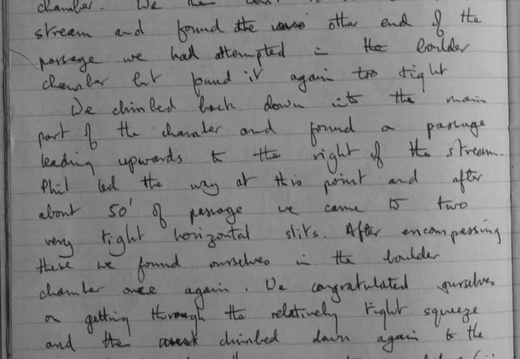 chamber. We then
stream and found the other end of the
passage we had attempted in the boulder
chamber but found it again too tight
We climbed back down into the main
part of the chamber and found a passage
leading upwards to the right of the stream.
Phil led the way at this point and after
about 50' of passage we came to two
very tight horizontal slits. After encompassing
these we found ourselves in the boulder
chamber once again. We congratulated ourselves
on getting through the relatively tight squeeze
and then climbed down again to the